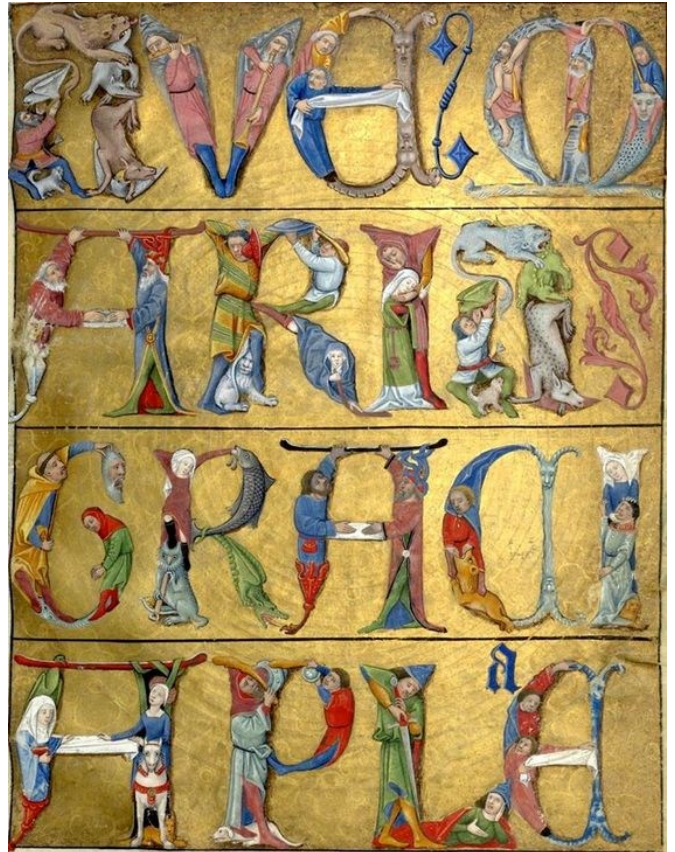 AVE : M
ARIA
GRACI
A PLEa